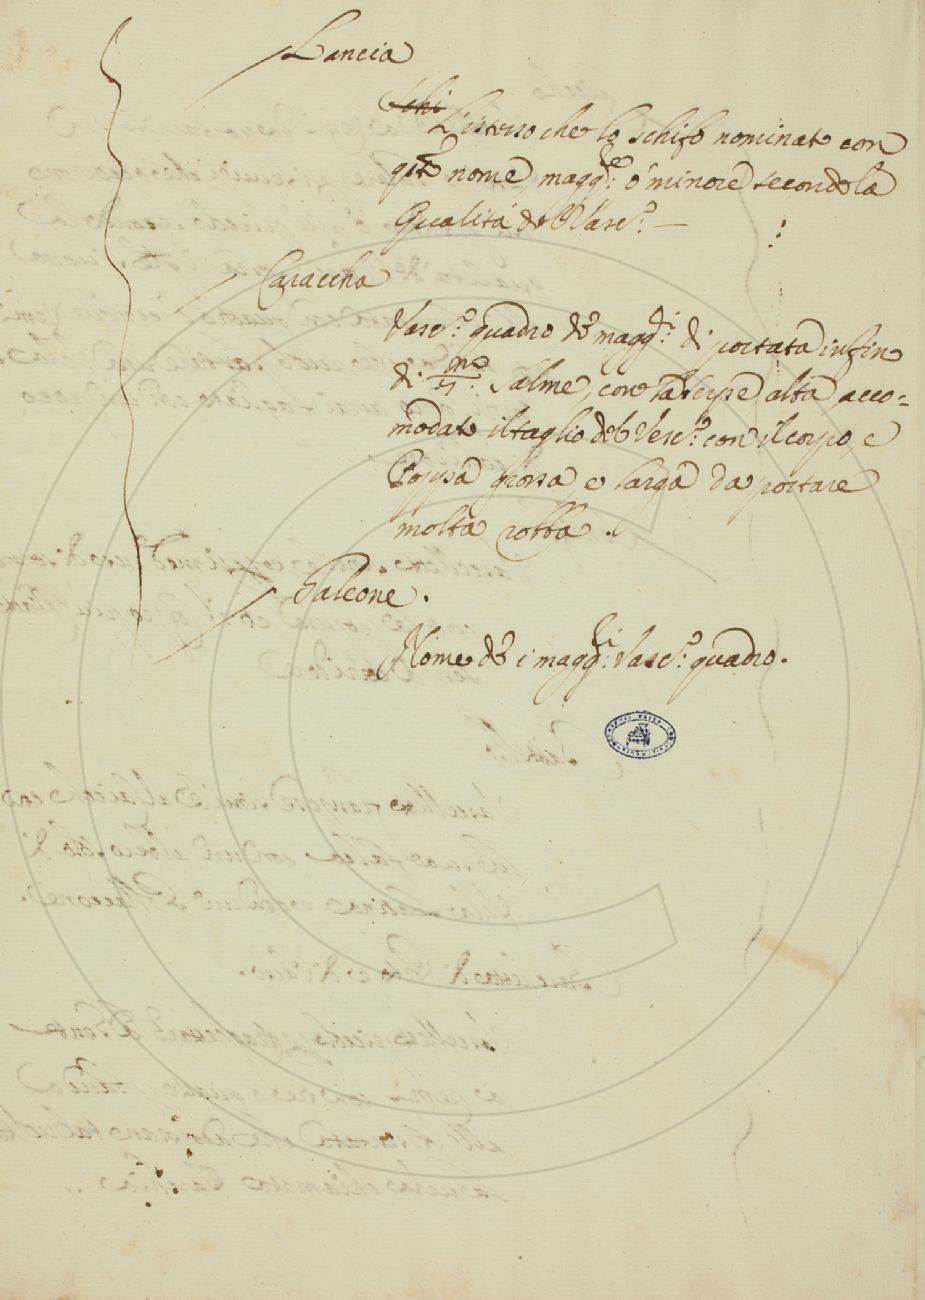 Lancia
Schi
L'istesso che lo schifo nominato con
qsto nome, magg:re ó minore secondo la
Qualitá del Vasc:o —
Caraccha
Vasc:o quadro de magg:ri di portata infin
di Salme, con la alta acco=
modato il taglio del Vasc:o con il corpo, e
Poppa grossa, e larga da portare
molta robba.
Galeone.
Nome de i magg:ri Vasc:o quadro.